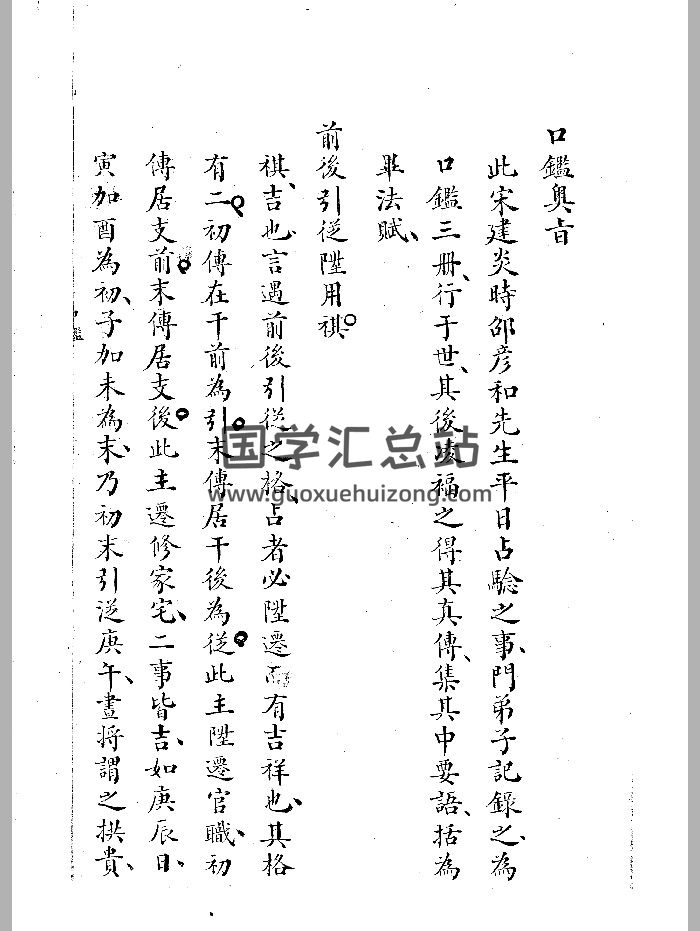 口鑑奥旨
此宋建炎時邵彦和先生平日占驗之事、門弟子記錄之、為
口鑑三册、行于世、其後凌福之得其真傳、集其中要語、括為
畢法賦、
前後引從陞用祺。
祺、吉也、言遇前後引從之格、占者必陞遷而有吉祥也、其格
有二。初傳在干前為引。末傳居干後為從。此主陞遷官職、初
傳居支前。末傳居支後。此主遷修家宅、二事皆吉、如庚辰日、
寅加酉為初、子加未為末、乃初末引從庚午、晝將謂之拱貴、
口鑑
国学汇总站
www.guoxuehuizong.com